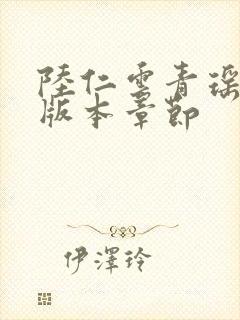 陸仁雲青瑶
版本章節
伊澤玲